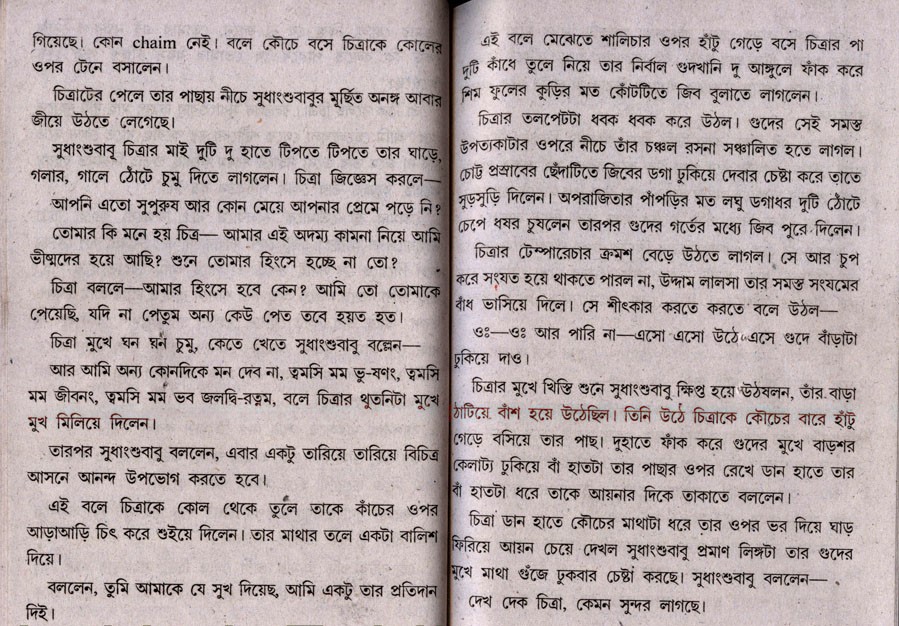 গিয়েছে। কোন chaim নেই। বলে কৌচে বসে চিত্রাকে কোলের
ওপর টেনে বসালেন।
চিত্রাটের পেলে তার পাছায় নীচে সুধাংশুবাবুর মূর্ছিত অনঙ্গ আবার
জীয়ে উঠতে লেগেছে।
সুধাংশুবাবু চিত্রার মাই দুটি দু হাতে টিপতে টিপতে তার ঘাড়ে,
গলার, গালে ঠোঁটে চুমু দিতে লাগলেন। চিত্রা জিজ্ঞেস করলে—
আপনি এতো সুপুরুষ আর কোন মেয়ে আপনার প্রেমে পড়ে নি?
তোমার কি মনে হয় চিত্র— আমার এই অদম্য কামনা নিয়ে আমি
ভীষ্মদের হয়ে আছি? শুনে তোমার হিংসে হচ্ছে না তো?
চিত্রা বললে—আমার হিংসে হবে কেন? আমি তো তোমাকে
পেয়েছি, যদি না পেতুম অন্য কেউ পেত তবে হয়ত হত।
চিত্রা মুখে ঘন ঘন চুমু, কেতে খেতে সুধাংশুবাবু বল্লেন—
আর আমি অন্য কোনদিকে মন দেব না, ত্বমসি মম ভু-ষণং, ত্বমসি
মম জীবনং, ত্বমসি মম ভব জলদ্বি-রত্নম, বলে চিত্রার থুতনিটা মুখে
মুখ মিলিয়ে দিলেন।
তারপর সুধাংশুবাবু বললেন, এবার একটু তারিয়ে তারিয়ে বিচিত্র
আসনে আনন্দ উপভোগ করতে হবে।
এই বলে চিত্রাকে কোল থেকে তুলে তাকে কাঁচের ওপর
আড়াআড়ি চিৎ করে শুইয়ে দিলেন। তার মাথার তলে একটা বালিশ
দিয়ে।
বললেন, তুমি আমাকে যে সুখ দিয়েছ, আমি একটু তার প্রতিদান
দিই।
এই বলে মেঝেতে শালিচার ওপর হাঁটু গেড়ে বসে চিত্রার পা
দুটি কাঁধে তুলে নিয়ে তার নির্বাল গুদখানি দু আঙ্গুলে ফাঁক করে
শিম ফুলের কুড়ির মত কোঁটটিতে জিব বুলাতে লাগলেন।
চিত্রার তলপেটটা ধবক ধবক করে উঠল। গুদের সেই সমস্ত
উপত্যকাটার ওপরে নীচে তাঁর চঞ্চল রসনা সঞ্চালিত হতে লাগল।
চোট্ট প্রস্রাবের ছেঁদাটিতে জিবের ডগা ঢুকিয়ে দেবার চেষ্টা করে তাতে
সুড়সুড়ি দিলেন। অপরাজিতার পাঁপড়ির মত লঘু ডগাধর দুটি ঠোঁটে
চেপে ধষর চুষলেন তারপর গুদের গর্তের মধ্যে জিব পুরে দিলেন।
চিত্রার টেম্পারেচার ক্রমশ বেড়ে উঠতে লাগল। সে আর চুপ
করে সংযত হয়ে থাকতে পারল না, উদ্দাম লালসা তার সমস্ত সংযমের
বাঁধ ভাসিয়ে দিলে। সে শীৎকার করতে করতে বলে উঠল—
ওঃ—ওঃ আর পারি না—এসো এসো উঠে এসে গুদে বাঁড়াটা
ঢুকিয়ে দাও।
চিত্রার মুখে খিস্তি শুনে সুধাংশুবাবু ক্ষিপ্ত হয়ে উঠষলন, তাঁর বাড়া
ঠাটিয়ে বাঁশ হয়ে উঠেছিল। তিনি উঠে চিত্রাকে কৌচের বারে হাঁটু
গেড়ে বসিয়ে তার পাছ। দুহাতে ফাঁক করে গুদের মুখে বাড়শর
কেলাট্য ঢুকিয়ে বাঁ হাতটা তার পাছার ওপর রেখে ডান হাতে তার
বাঁ হাতটা ধরে তাকে আয়নার দিকে তাকাতে বললেন।
চিত্রা ডান হাতে কৌচের মাথাটা ধরে তার ওপর ভর দিয়ে ঘাড়
ফিরিয়ে আয়ন চেয়ে দেখল সুধাংশুবাবু প্রমাণ লিঙ্গটা তার গুদের
মুখে মাথা গুঁজে ঢুকবার চেষ্টা করছে। সুধাংশুবাবু বললেন—
দেখ দেক চিত্রা, কেমন সুন্দর লাগছে।